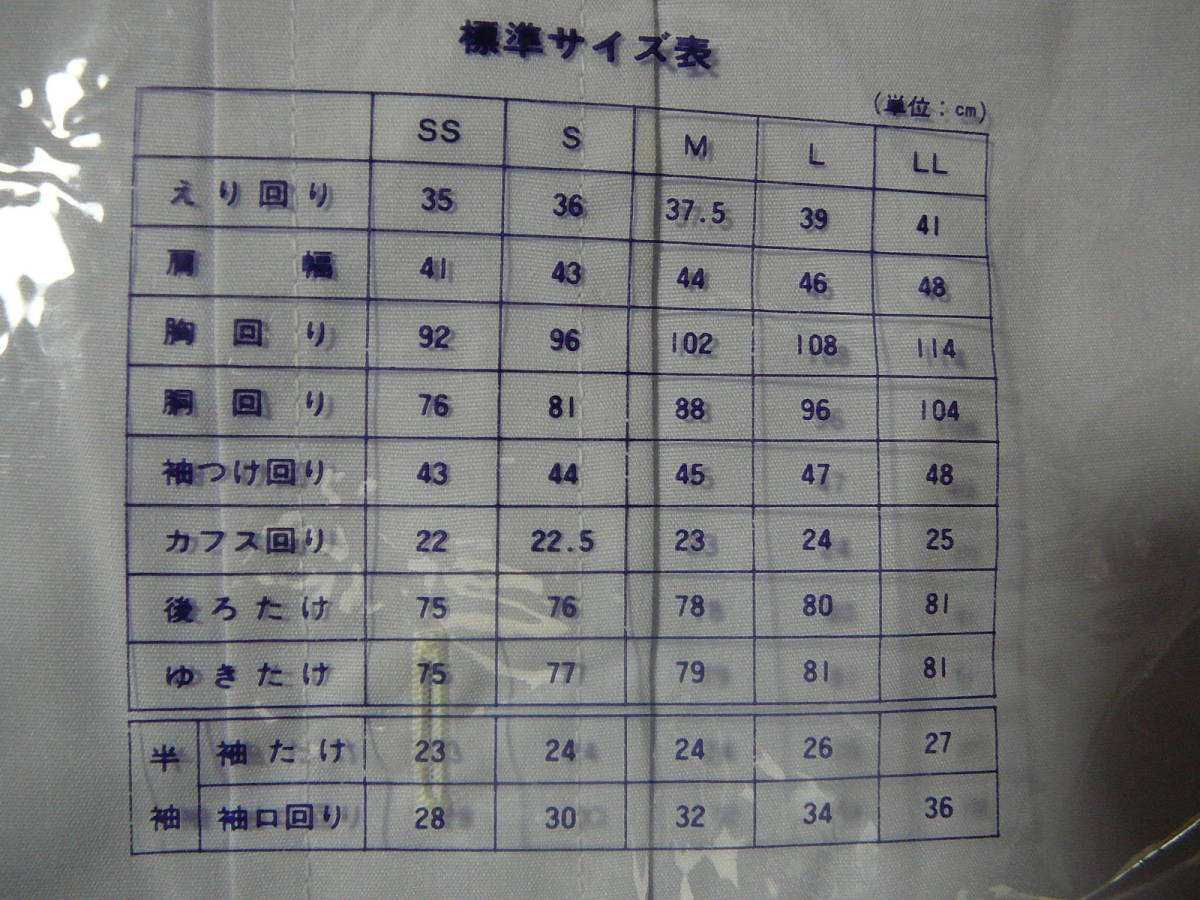 標準サイズ表
(単位：cm)
SS S M L LL
えり回り 35 36 37.5 39 41
肩幅 41 43 44 46 48
胸回り 92 96 102 108 114
胴回り 76 81 88 96 104
袖つけ回り 43 44 45 47 48
カフス回り 22 22.5 23 24 25
後ろたけ 75 76 78 80 81
ゆきたけ 75 77 79 81 81
半袖 袖たけ 23 24 24 26 27
袖口回り 28 30 32 34 36